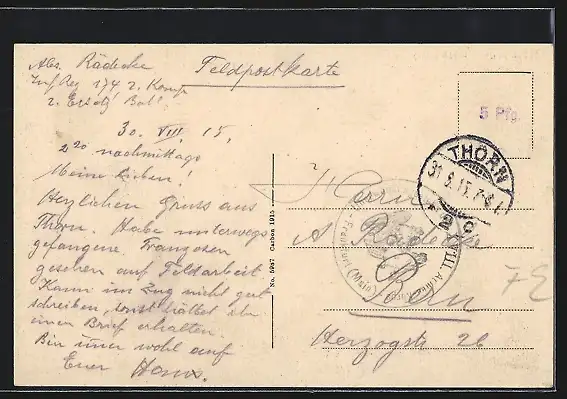 Abs. Rädecke
Inf Reg 174 2. Komp
2. Ersatz Bat.
Feldpostkarte
5 Pfg
30. VIII. 15.
2 20 nachmittags
Meine Lieben!
Herzlichen Gruss aus
Thorn. Habe unterwegs
gefangene Franzosen
gesehen auf Feldarbeit.
Kann im Zug nicht gut
schreiben, sonst hättet ihr
einen Brief erhalten.
Bin immer wohl auf
Euer Hans.
No. 5957 Carbon 1915
THORN
31.8.15.
2 c
Herrn
A Rädecke
Bern
Herzogstr 26